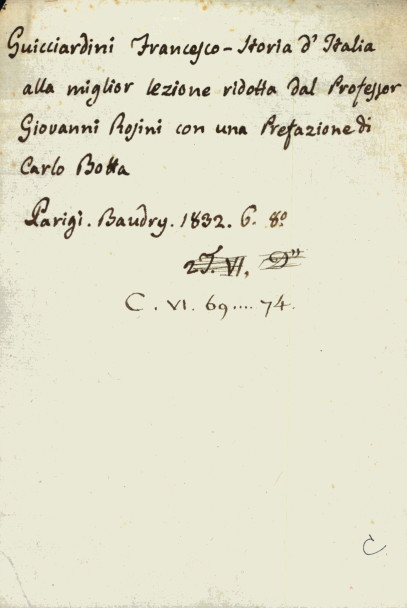 Guicciardini Francesco - Storia d'Italia
alla miglior lezione ridotta dal Professor
Giovanni Rosini con una Prefazione di
Carlo Botta
Parigi. Baudry. 1832. 6. 8.º
C. VI. 69.... 74.
C